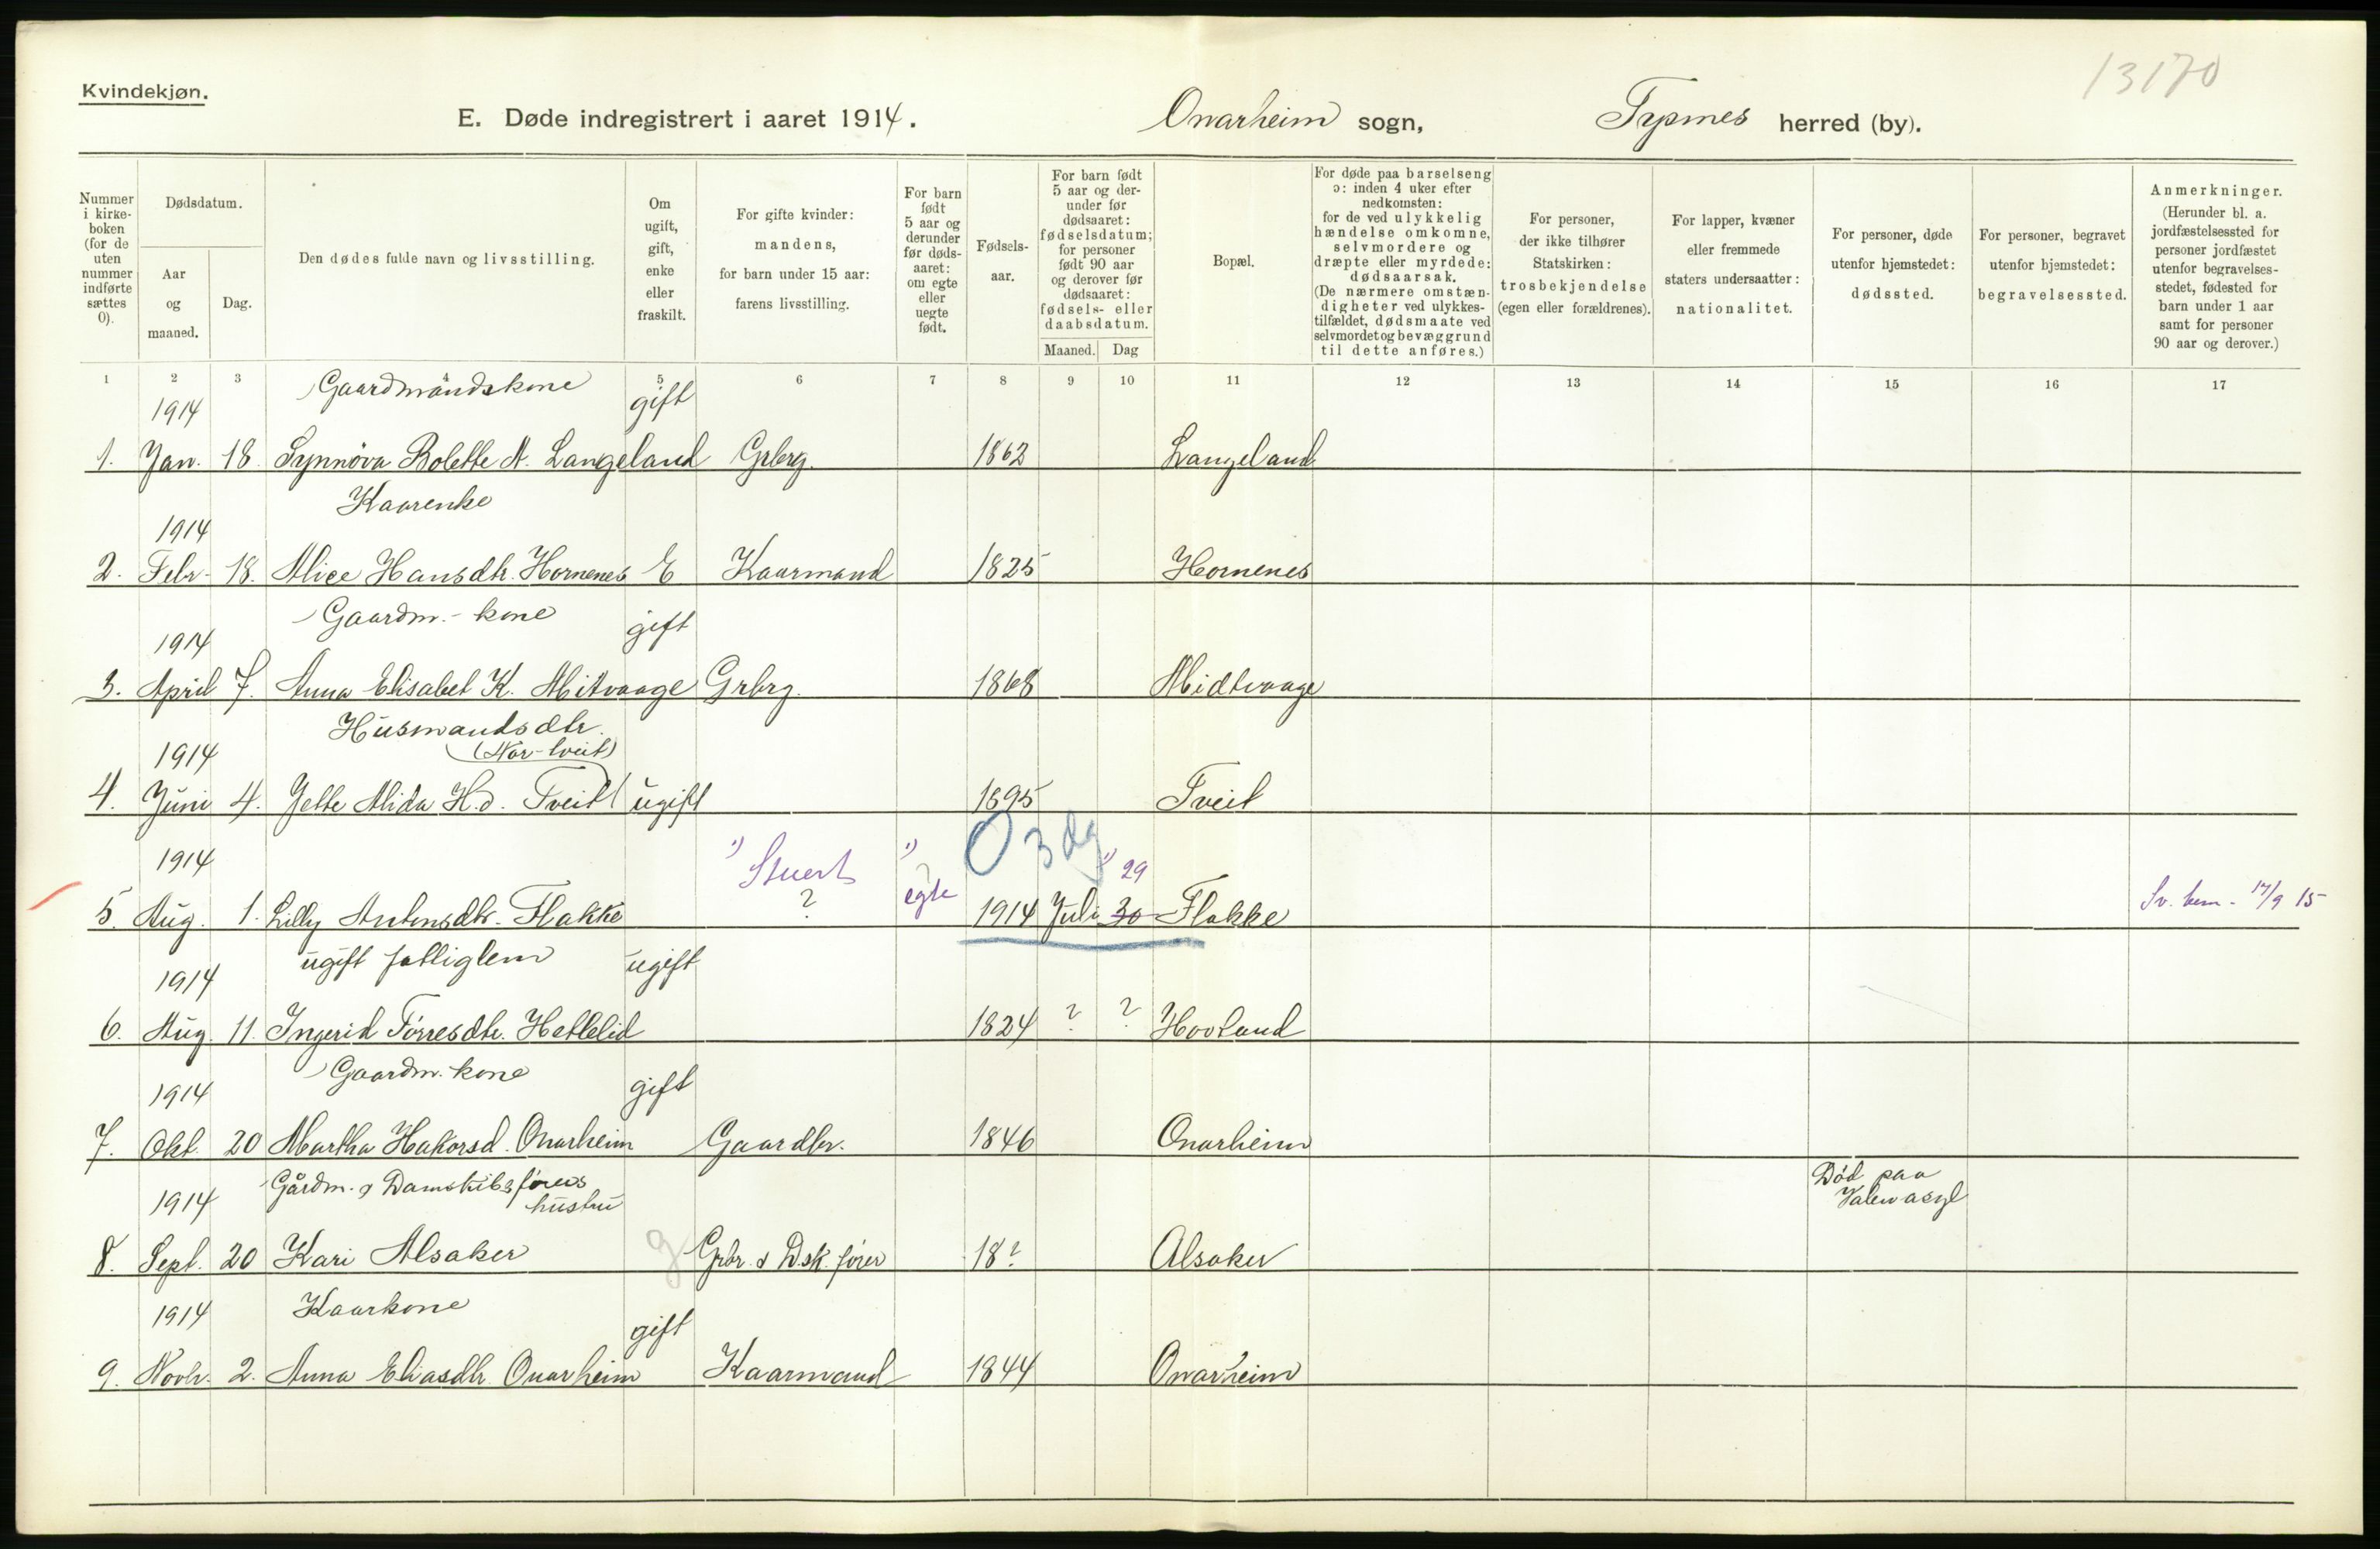 13170
Kvindekjøn.
E. Døde indregistrert i aaret 1914. Onarheim sogn, Tysnes herred (by).
Nummer i kirke- boken (for de uten nummer indførte sættes 0).
Dødsdatum.
Aar og maaned.
Dag.
Den dødes fulde navn og livsstilling.
Om ugift, gift, enke eller fraskilt.
For gifte kvinder: mandens, for barn under 15 aar: farens livsstilling.
For barn født 5 aar og derunder før døds- aaret: om egte eller uegte født.
Fødsels- aar.
For barn født 5 aar og der- under før dødsaaret: fødselsdatum; for personer født 90 aar og derover før dødsaaret: fødsels- eller daabsdatum.
Maaned. Dag
Bopæl.
For døde paa barselseng ɔ: inden 4 uker efter nedkomsten: for de ved ulykkelig hændelse omkomne, selvmordere og dræpte eller myrdede: dødsaarsak. (De nærmere omstæn- digheter ved ulykkes- tilfældet, dødsmaate ved selvmordet og bevæggrund til dette anføres.)
For personer, der ikke tilhører Statskirken: trosbekjendelse (egen eller forældrenes).
For lapper, kvæner eller fremmede staters undersaatter: nationalitet.
For personer, døde utenfor hjemstedet: dødssted.
For personer, begravet utenfor hjemstedet: begravelsessted.
Anmerkninger. (Herunder bl. a. jordfæstelsessted for personer jordfæstet utenfor begravelses- stedet, fødested for barn under 1 aar samt for personer 90 aar og derover.)
1 2 3 4 5 6 7 8 9 10 11 12 13 14 15 16 17
1914 Gaardmandskone gift
1. Jan. 18. Synnöva Bolette N. Langeland Grbrg. 1862 Langeland
1914 Kaarenke
2. Febr. 18. Alice Hansdtr. Hornenes E Kaarmand 1825 Hornenes
1914 Gaardm.-kone gift
3. April 7. Anna Elisabet K. Mitvaage Grbrg. 1868 Midtvaage
1914 Husmandsdtr. (Nor-tveit)
4. Juni 4. Jette Alida H.d. Tveit ugift 1895 Tveit
1914 1) Stuert 1) egte 0 3 dg 1) 29
5. Aug. 1. Lilly Antonsdtr. Flakke ? ? 1914 Juli 30 Flakke Sv. hem. 17/9 15
1914 ugift fattiglem ugift
6. Aug. 11. Ingerid Torresdtr. Hetlelid 1824 ? ? Hovland
1914 Gaardm. kone gift
7. Okt. 20 Martha Hakorsd. Onarheim Gaardbr. 1846 Onarheim
1914 Gårdm. & Damskibsförers hustru Död paa Valen asyl
8. Sept. 20 Kari Alsaker g Grbr. & D.sk. förer 18? Alsaker
1914 Kaarkone gift
9. Novbr. 2. Anna Eliasdtr. Onarheim Kaarmand 1844 Onarheim